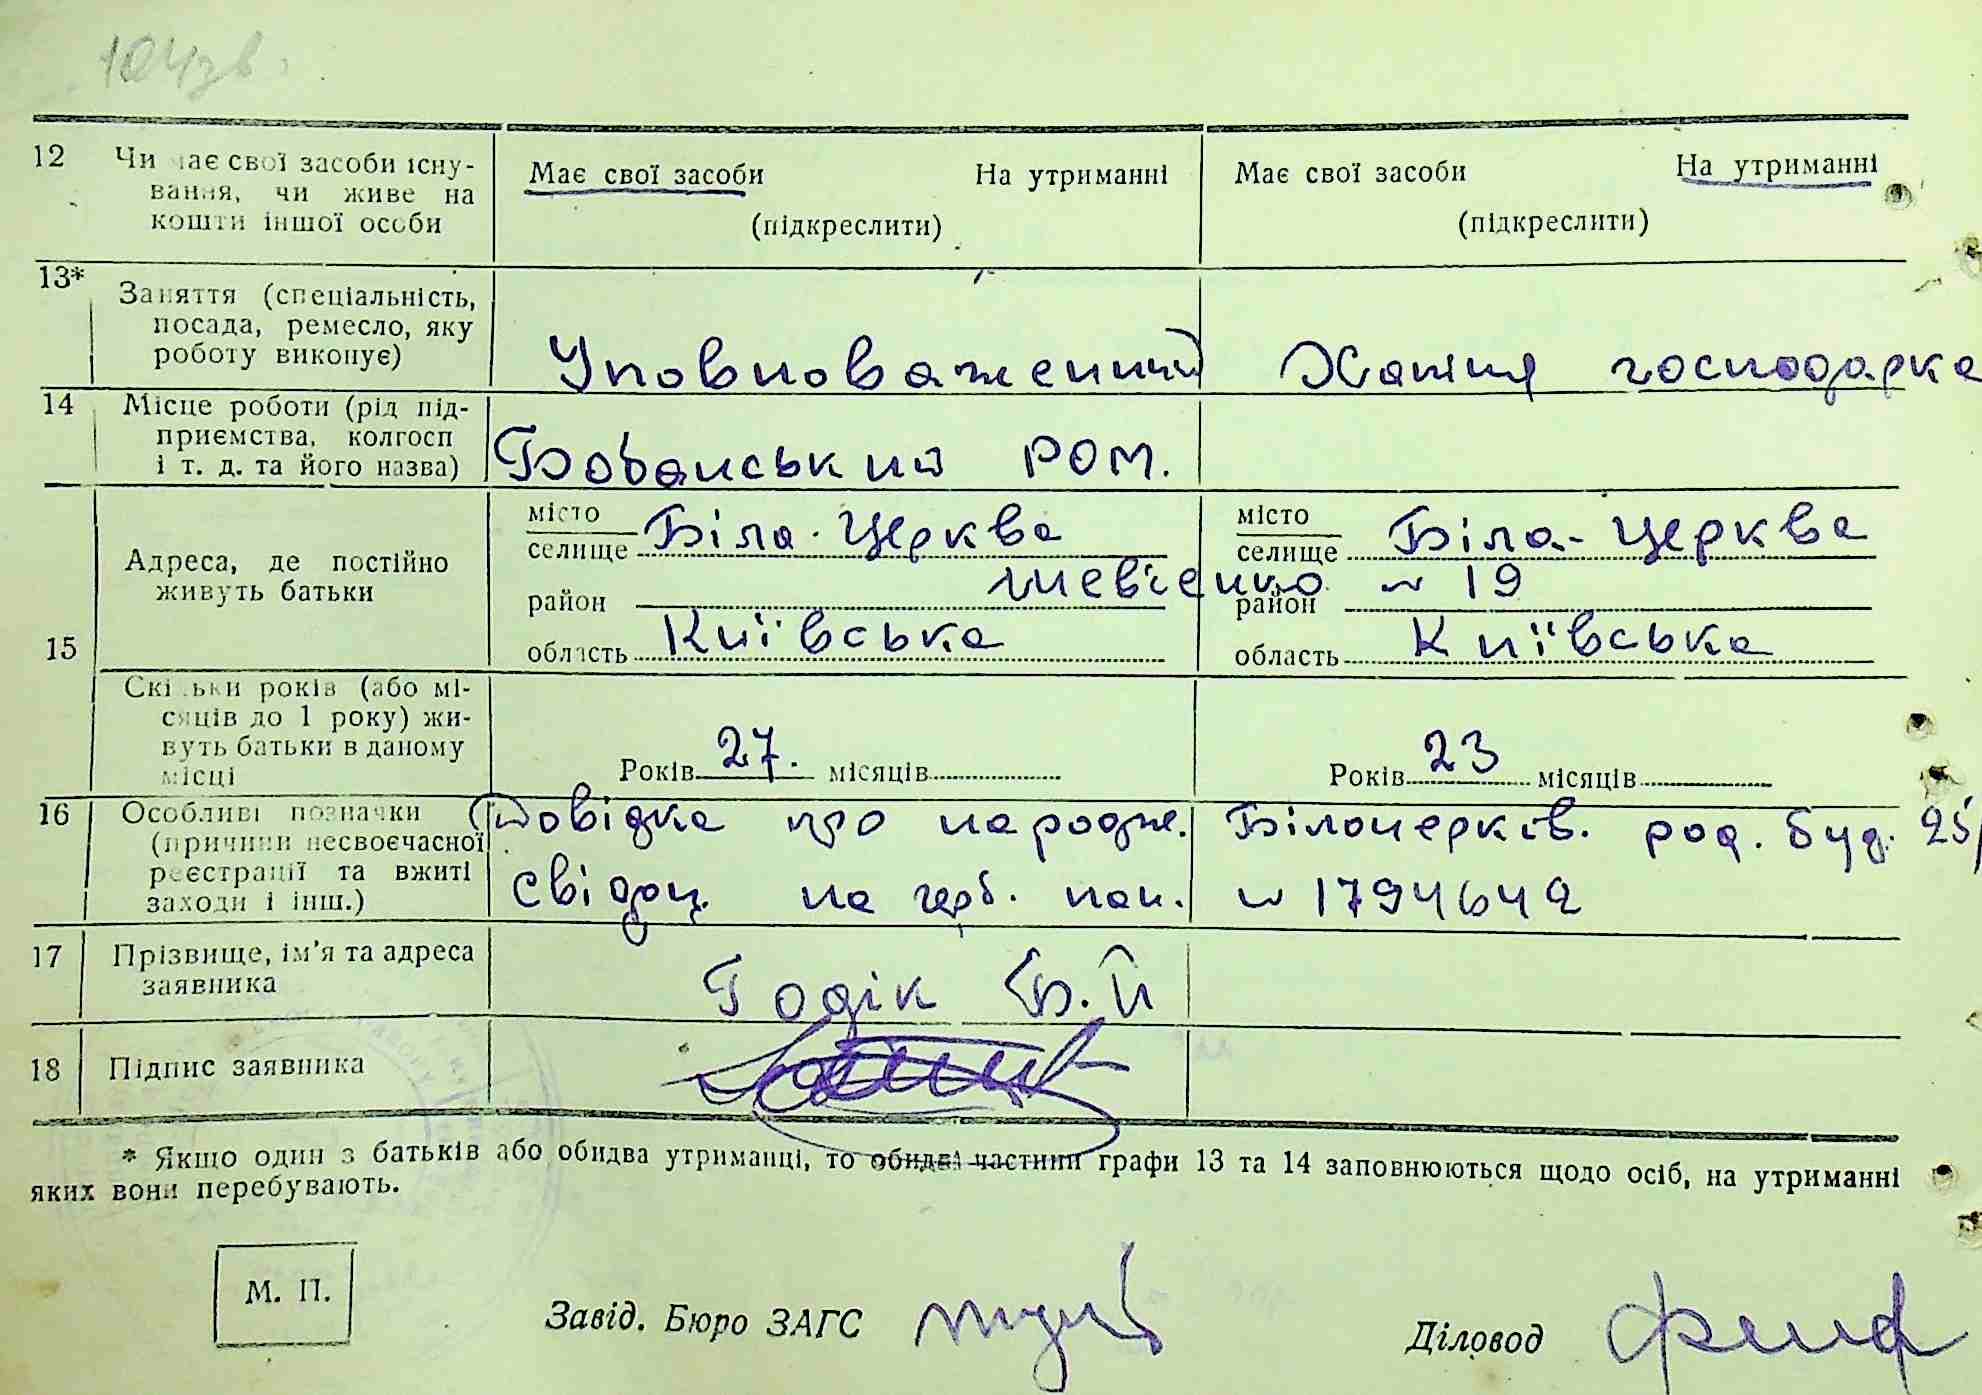 104зв.
12 Чи має свої засоби існу-
вання, чи живе на
кошти іншої особи
Має свої засоби На утриманні
(підкреслити)
Має свої засоби На утриманні
(підкреслити)
13* Заняття (спеціальність,
посада, ремесло, яку
роботу виконує)
Уповноважений
Хатня господарка
14 Місце роботи (рід під-
приємства, колгосп
і т. д. та його назва)
ром.
15 Адреса, де постійно
живуть батьки
місто
селище Біла-Церква
район
область Київська
місто
селище Біла-Церква
район
область Київська
Шевченко № 19
Скільки років (або мі-
сяців до 1 року) жи-
вуть батьки в даному
місці
Років 27. місяців
Років 23 місяців
16 Особливі позначки
(причини несвоєчасної
реєстрації та вжиті
заходи і інш.)
Довідка про народже. Білоцерків. род. буд. 25/
Свідоц. на герб. пап. № 1794642
17 Прізвище, ім'я та адреса
заявника
Годік Б. Й
18 Підпис заявника
* Якщо один з батьків або обидва утриманці, то обидві частини графи 13 та 14 заповнюються щодо осіб, на утриманні
яких вони перебувають.
М. П.
Завід. Бюро ЗАГС
Діловод